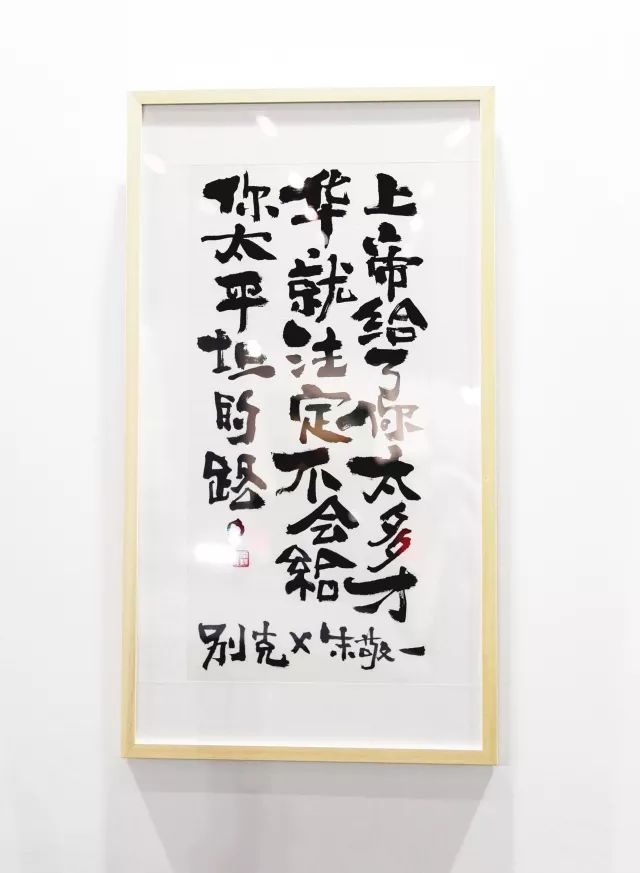 上帝给了你太多才
华就注定不会给
你太平坦的路。
别克×朱敬一